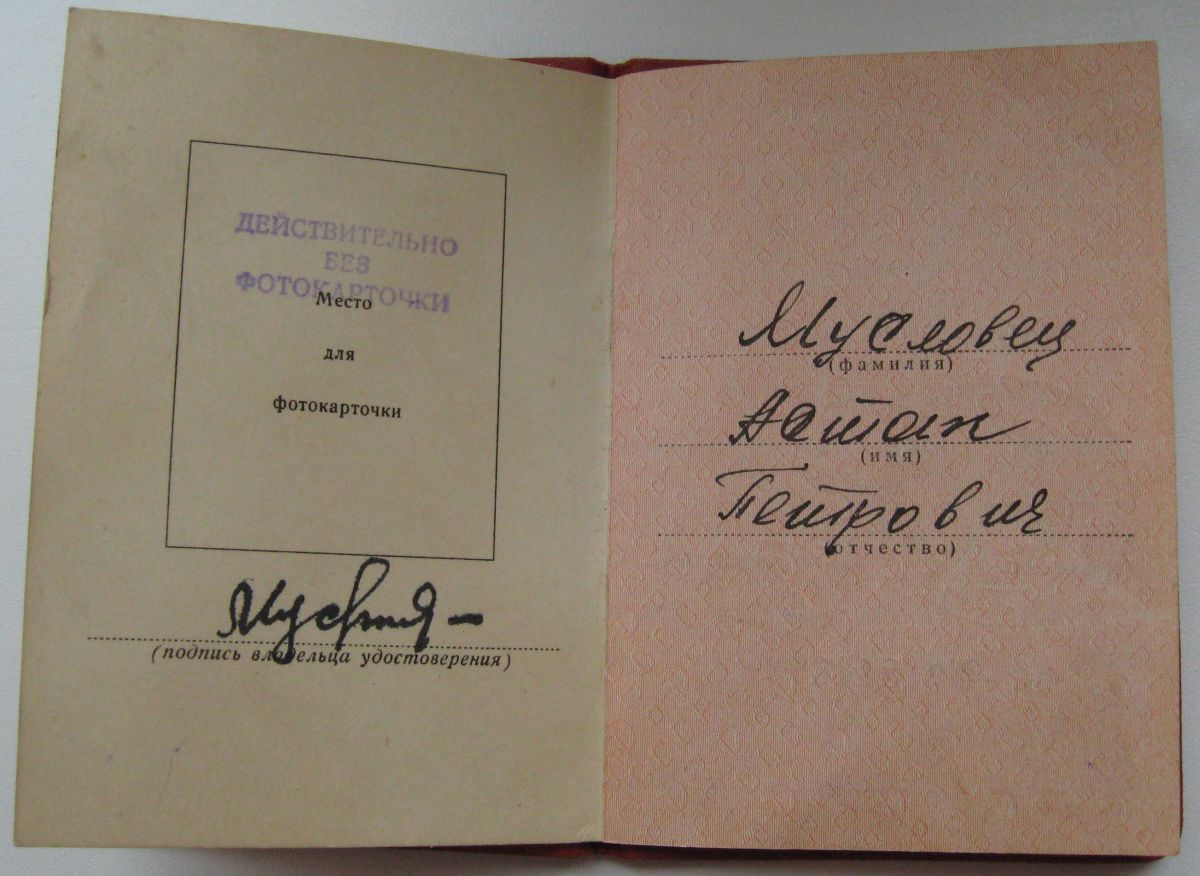 ДЕЙСТВИТЕЛЬНО
БЕЗ
ФОТОКАРТОЧКИ
Место
для
фотокарточки
(подпись владельца удостоверения)
Мусловец
(фамилия)
Астан
(имя)
Петрович
(отчество)